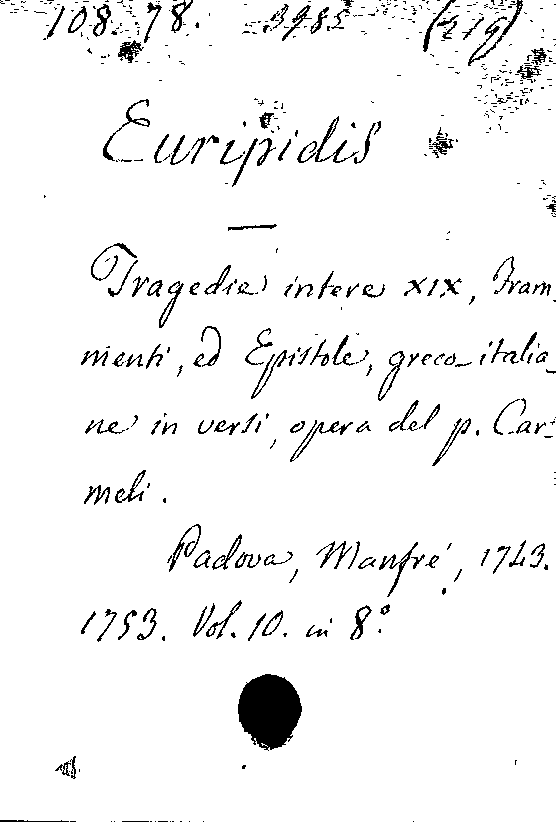 108. 78. 3985 (219)
Euripidis
Tragedie intere XIX, Fram
menti, ed Epistole, greco-italia-
ne in versi, opera del p. Car-
meli.
Padova, Manfré, 1743.
1753. Vol. 10. in 8.º